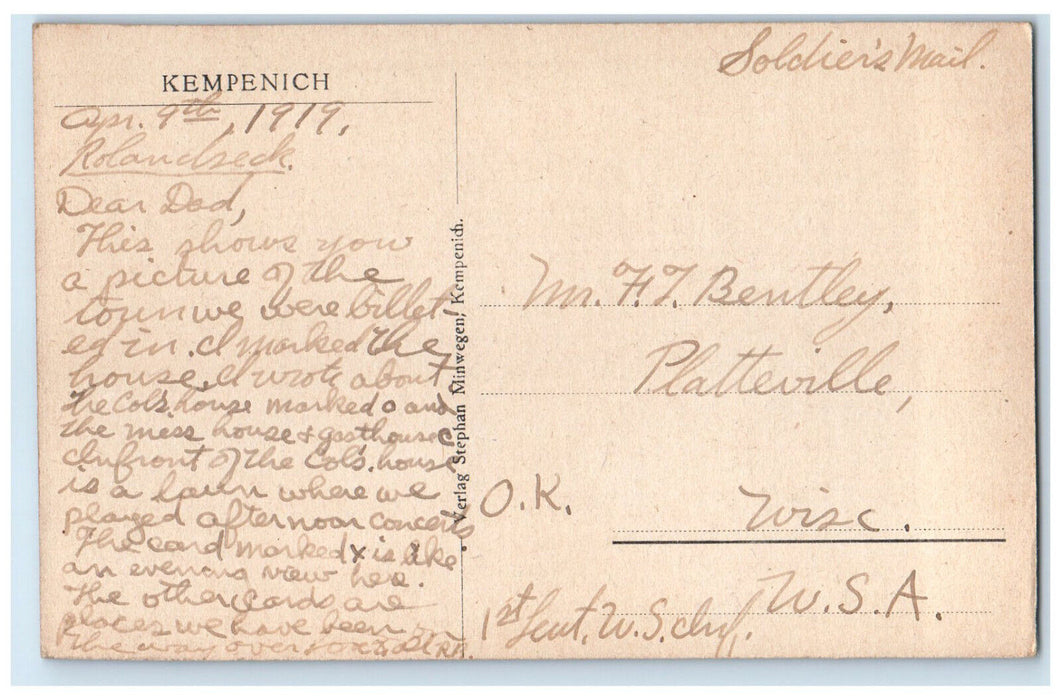 KEMPENICH
Apr. 9th, 1919,
Rolandseck.
Dear Dad,
This shows you
a picture of the
town we were billet-
ed in. I marked the
house. I wrote about
the Col's house marked o and
the mess house + gasthouse
In front of the Col's. house
is a lawn where we
played afternoon concerts
The card marked x is like
an evening view here.
The other cards are
places we have been
the way over
Verlag Stephan Minwegen, Kempenich.
Soldier's Mail.
Mr. F. T. Bentley,
Platteville,
Wisc.
U.S.A.
O.K.
1st Lieut. U.S. Inf.